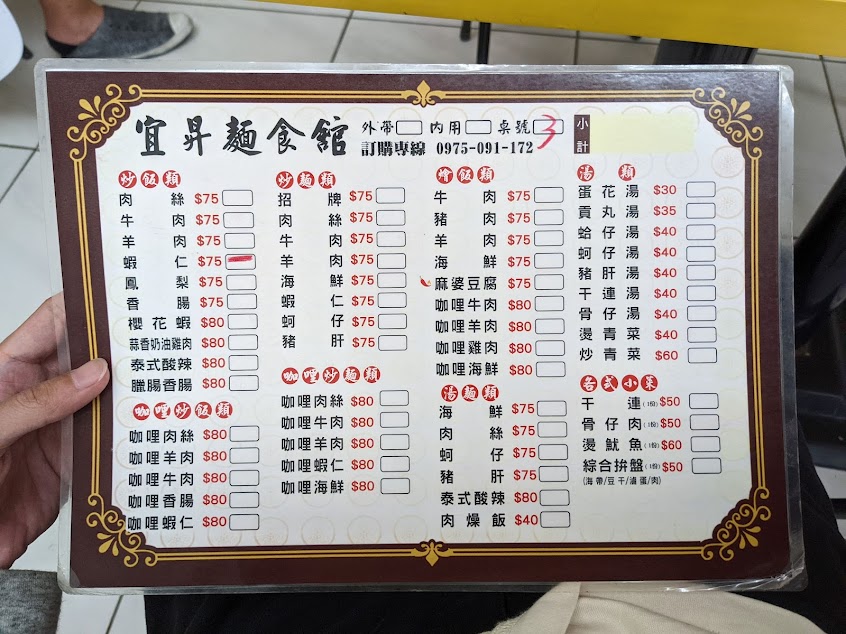 宜昇麵食舘
外帶 內用 桌號 3
訂購專線 0975-091-172
小計
炒飯類
肉絲 $75
牛肉 $75
羊肉 $75
蝦仁 $75
鳳梨 $75
香腸 $75
櫻花蝦 $80
蒜香奶油雞肉 $80
泰式酸辣 $80
臘腸香腸 $80
咖哩炒飯類
咖哩肉絲 $80
咖哩羊肉 $80
咖哩牛肉 $80
咖哩香腸 $80
咖哩蝦仁 $80
炒麵類
招牌 $75
肉絲 $75
牛肉 $75
羊肉 $75
海鮮 $75
蝦仁 $75
蚵仔 $75
豬肝 $75
咖哩炒麵類
咖哩肉絲 $80
咖哩牛肉 $80
咖哩羊肉 $80
咖哩蝦仁 $80
咖哩海鮮 $80
燴飯類
牛肉 $75
豬肉 $75
羊肉 $75
海鮮 $75
麻婆豆腐 $75
咖哩牛肉 $80
咖哩羊肉 $80
咖哩雞肉 $80
咖哩海鮮 $80
湯麵類
海鮮 $75
肉絲 $75
蚵仔 $75
豬肝 $75
泰式酸辣 $80
肉燥飯 $40
湯類
蛋花湯 $30
貢丸湯 $35
蛤仔湯 $40
蚵仔湯 $40
豬肝湯 $40
干連湯 $40
骨仔湯 $40
燙青菜 $40
炒青菜 $60
各式小菜
干連(1份) $50
骨仔肉(1份) $50
燙魷魚(1份) $60
綜合拚盤(1份) $50
(海帶/豆干/滷蛋/肉)